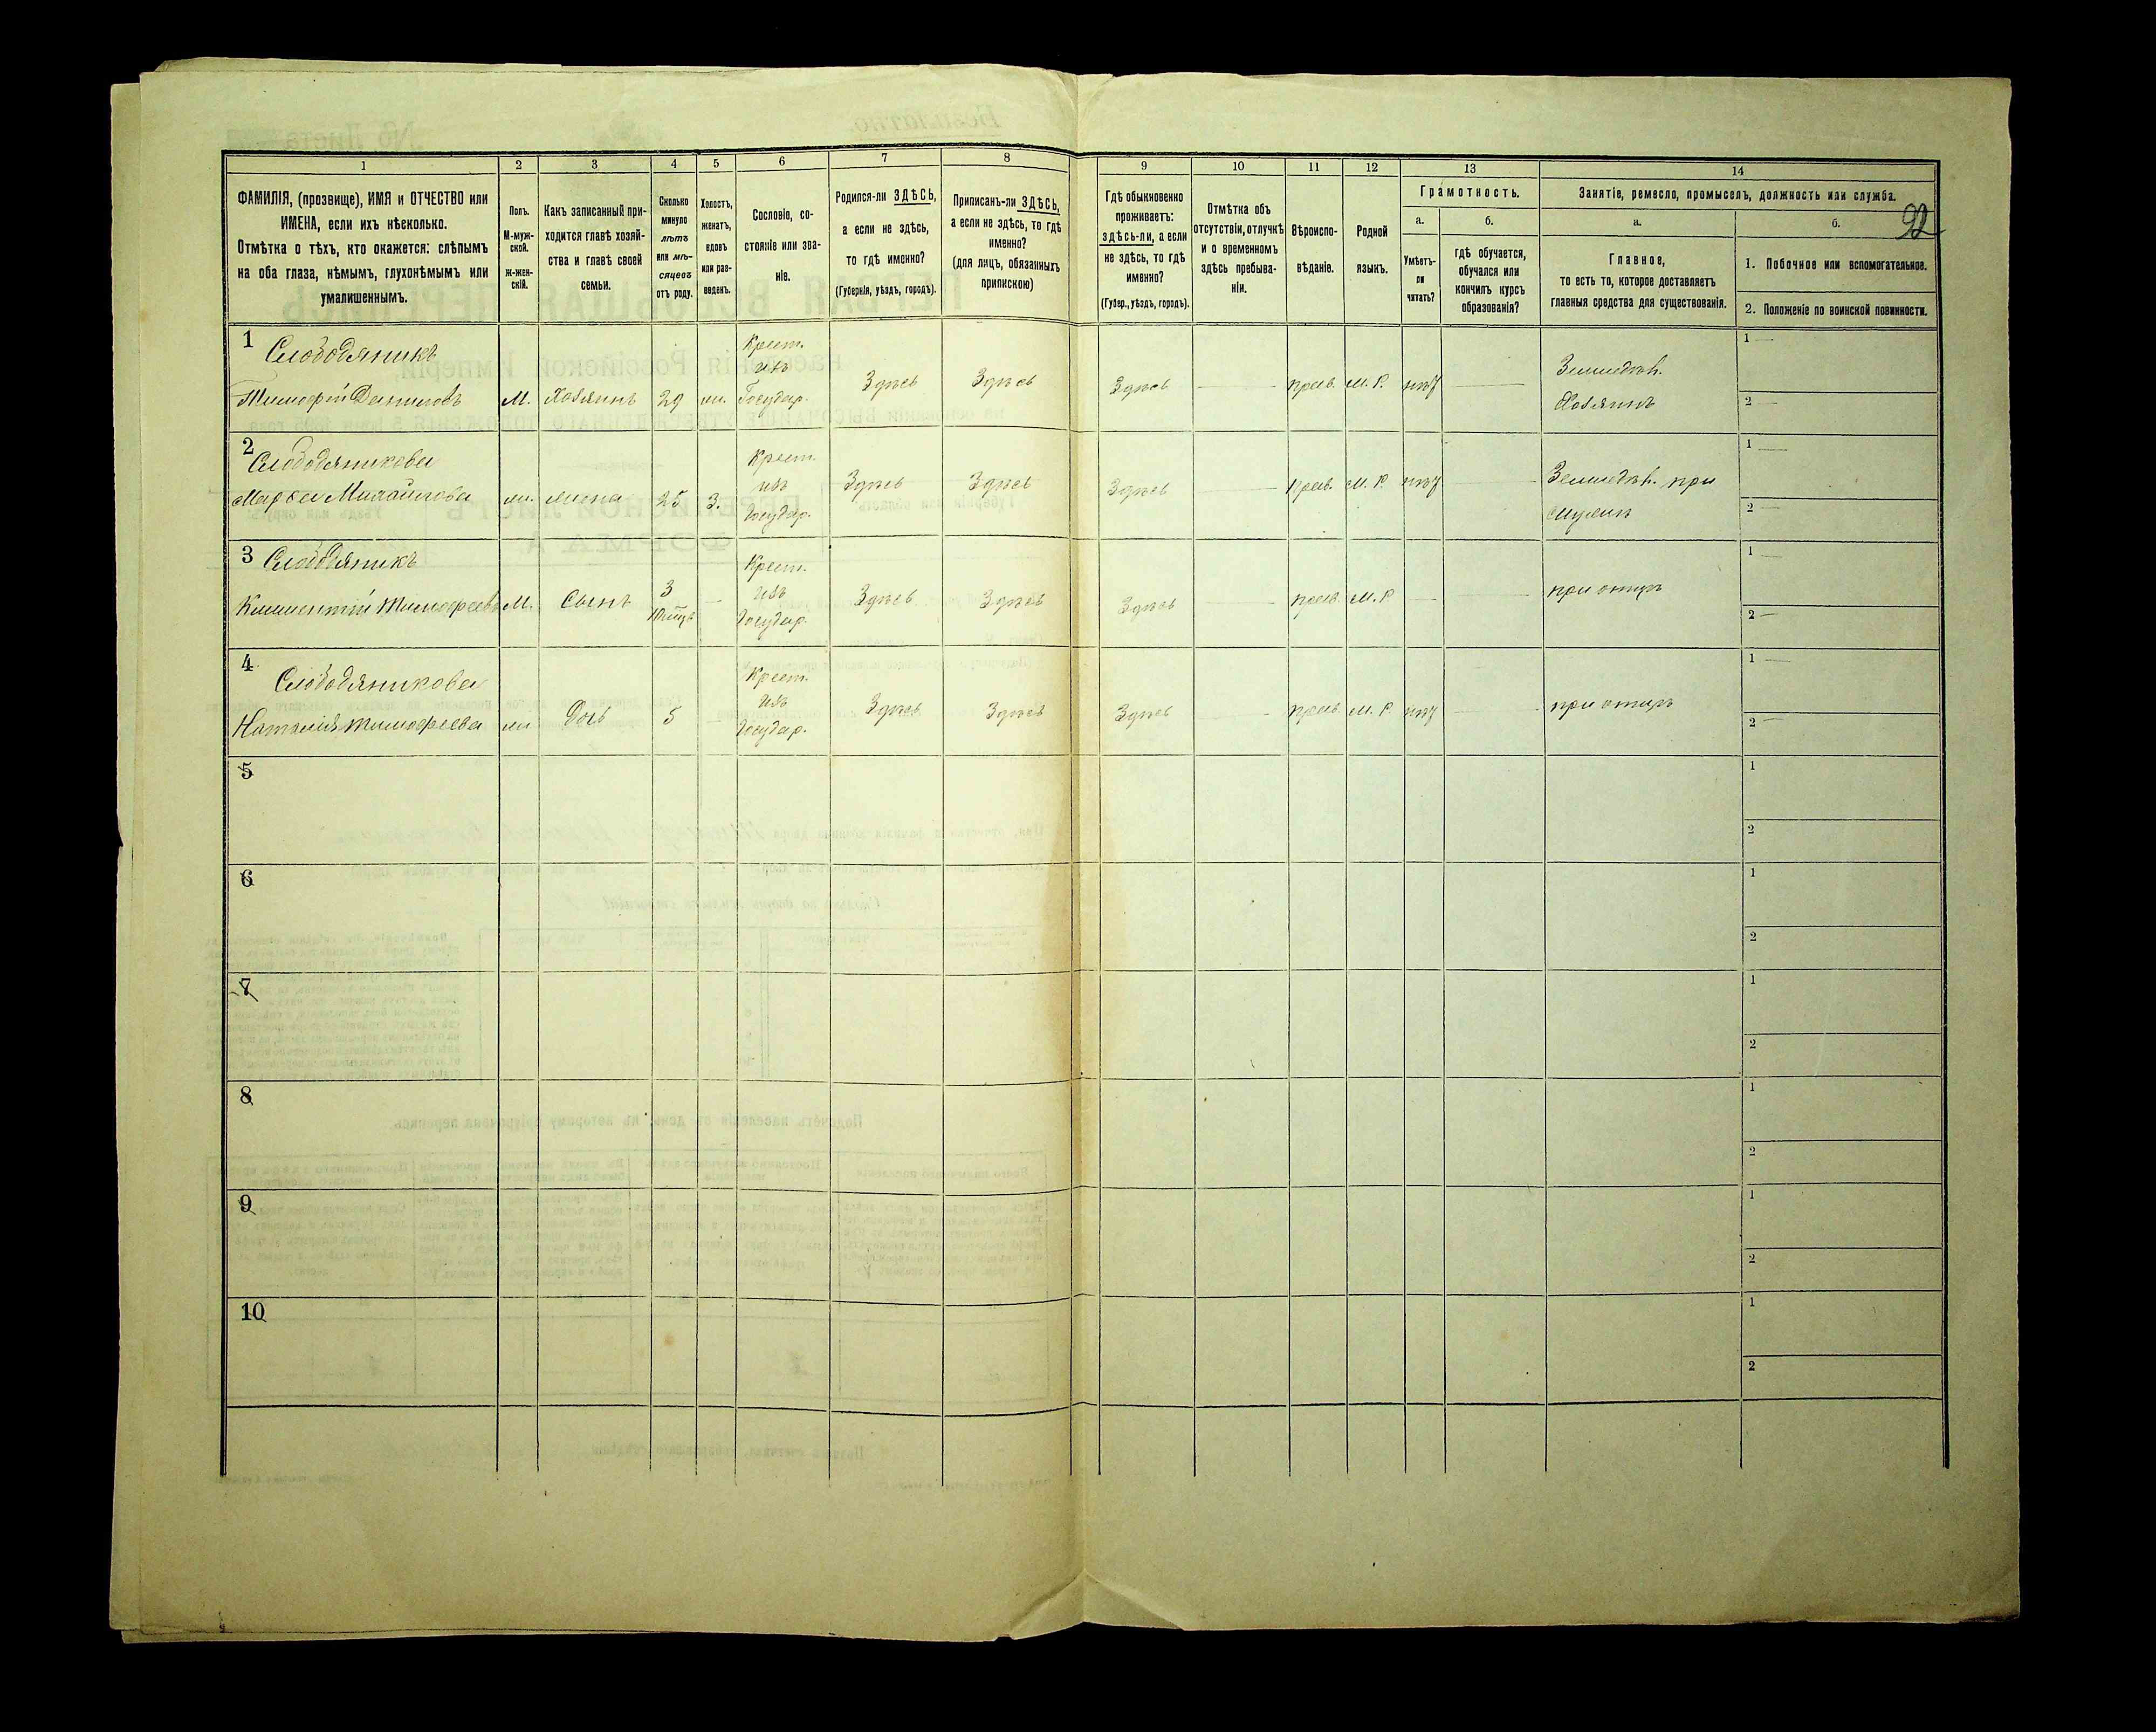 1 2 3 4 5 6 7 8 9 10 11 12 13 14
ФАМИЛІЯ, (прозвище), ИМЯ и ОТЧЕСТВО или
ИМЕНА, если ихъ нѣсколько.
Отмѣтка о тѣхъ, кто окажется: слѣпымъ
на оба глаза, нѣмымъ, глухонѣмымъ или
умалишеннымъ.
Полъ.
М-муж-
ской.
ж-жен-
скій.
Какъ записанный при-
ходится главѣ хозяй-
ства и главѣ своей
семьи.
Сколько
минуло
лѣтъ
или мѣ-
сяцевъ
отъ роду.
Холостъ,
женатъ,
вдовъ
или раз-
веденъ.
Сословіе, со-
стояніе или зва-
ніе.
Родился-ли ЗДѢСЬ,
а если не здѣсь,
то гдѣ именно?
(Губернія, уѣздъ, городъ).
Приписанъ-ли ЗДѢСЬ,
а если не здѣсь, то гдѣ
именно?
(для лицъ, обязанныхъ
припискою)
Гдѣ обыкновенно
проживаетъ:
здѣсь-ли, а если
не здѣсь, то гдѣ
именно?
(Губер., уѣздъ, городъ).
Отмѣтка объ
отсутствіи, отлучкѣ
и о временномъ
здѣсь пребыва-
ніи.
Вѣроиспо-
вѣданіе.
Родной
языкъ.
Грамотность.
а.
Умѣетъ-
ли
читать?
б.
гдѣ обучается,
обучался или
кончилъ курсъ
образованія?
Занятіе, ремесло, промыселъ, должность или служба.
а.
Главное,
то есть то, которое доставляетъ
главныя средства для существованія.
б.
92
1. Побочное или вспомогательное.
2. Положеніе по воинской повинности.
1 Слободяникъ
Тимофій Даниловъ М. Хозяинъ 29 ж. Крест. изъ Государ. Здѣсь Здѣсь Здѣсь — прав. М. Р. нѣт — Земледѣл.
Хозяинъ
1 —
2 —
2 Слободяникова
Марѳа Михайлова ж. жена 25 З. Крест. изъ Государ. Здѣсь Здѣсь Здѣсь — прав. М. Р. нѣт — Земледѣл. при
мужѣ
1 —
2 —
3 Слободяникъ
Климентій Тимофеевъ М. Сынъ 3 — Крест. изъ Государ. Здѣсь Здѣсь Здѣсь — прав. М. Р — — при отцѣ
1 —
2 —
4 Слободяникова
Наталія Тимофеева ж. Дочь 5 — Крест. изъ Государ. Здѣсь Здѣсь Здѣсь — прав. М. Р нѣт — при отцѣ
1 —
2 —
5
1
2
6
1
2
7
1
2
8
1
2
9
1
2
10
1
2